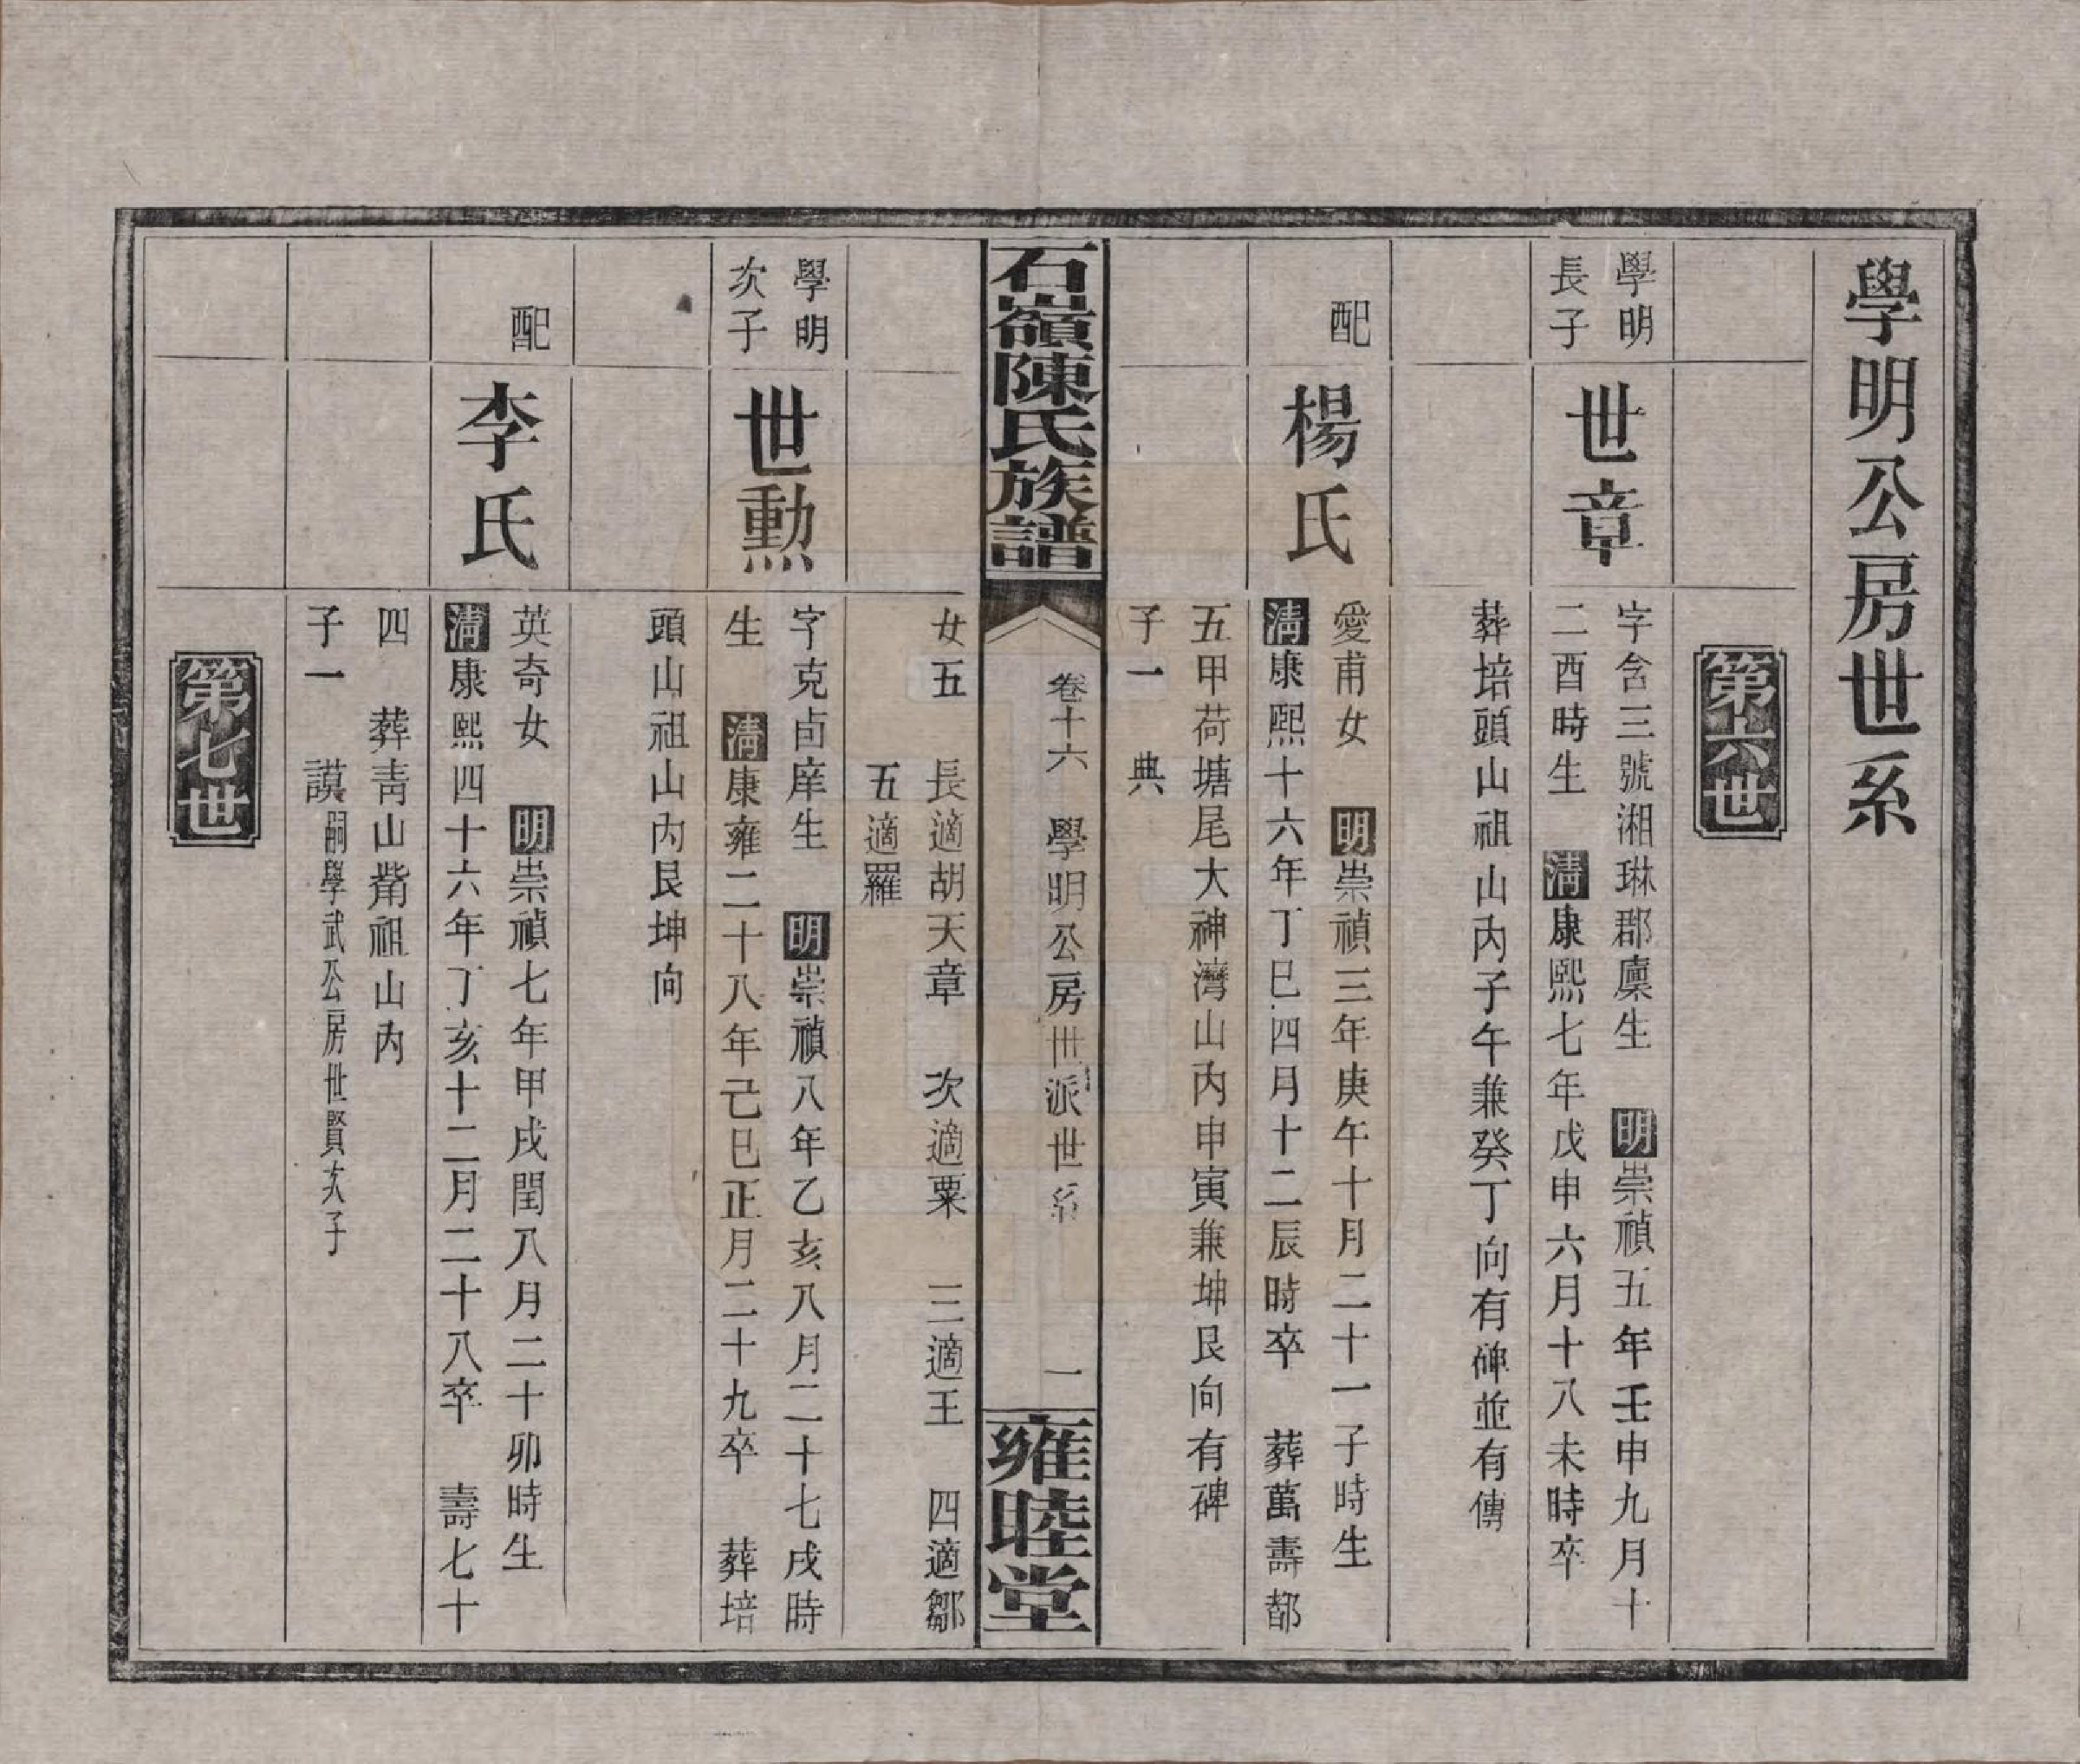 學明公房世系
第六世
學明
長子
世章
字含三號湘琳郡廩生　明崇禎五年壬申九月十
二酉時生　清康熙七年戊申六月十八未時卒
葬培頭山祖山內子午兼癸丁向有碑並有傳
配
楊氏
愛甫女　明崇禎三年庚午十月二十一子時生
清康熙十六年丁巳四月十二辰時卒　葬萬壽都
五甲荷塘尾大神灣山內申寅兼坤艮向有碑
子一　典
石嶺陳氏族譜
卷十六　學明公房世派世系
一
雍睦堂
女五　長適胡天章　次適粟　三適王　四適鄒
五適羅
學明
次子
世勳
字克卣庠生　明崇禎八年乙亥八月二十七戌時
生　清康雍二十八年己巳正月二十九卒　葬培
頭山祖山內艮坤向
配
李氏
英奇女　明崇禎七年甲戌閏八月二十卯時生
清康熙四十六年丁亥十二月二十八卒　壽七十
四　葬靑山觜祖山內
子一　謨嗣學武公房世賢次子
第七世